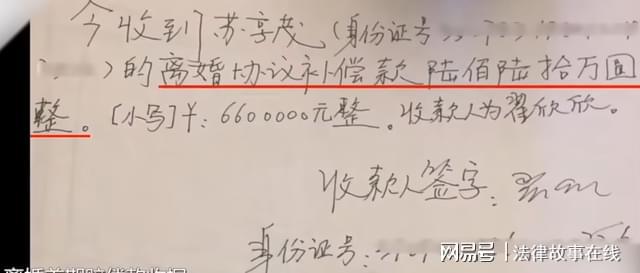 今收到苏享茂(身份证号
)的离婚协议补偿款陆佰陆拾万圆
整。[小写]¥:6600000元整。收款人为翟欣欣。
收款人签字:
身份证号:
网易号 | 法律故事在线